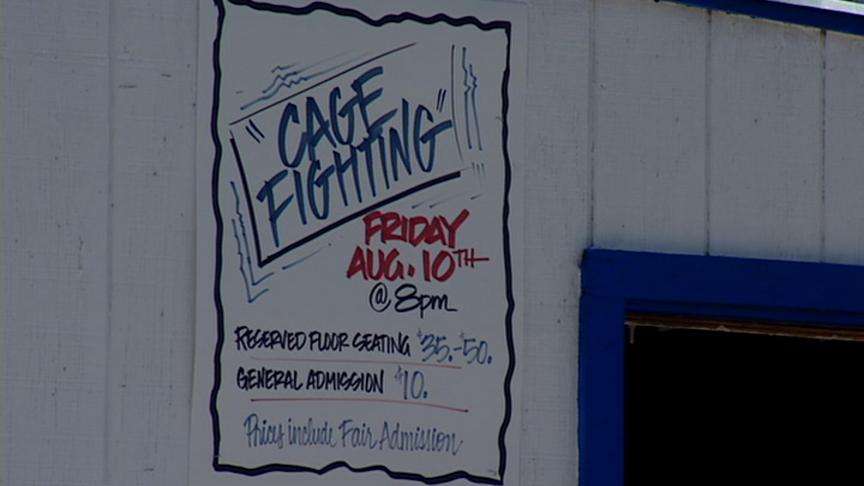 "CAGE
FIGHTING"
FRIDAY
AUG. 10TH
@ 8pm
RESERVED FLOOR SEATING $35.-50.
GENERAL ADMISSION $10.
Prices include Fair Admission